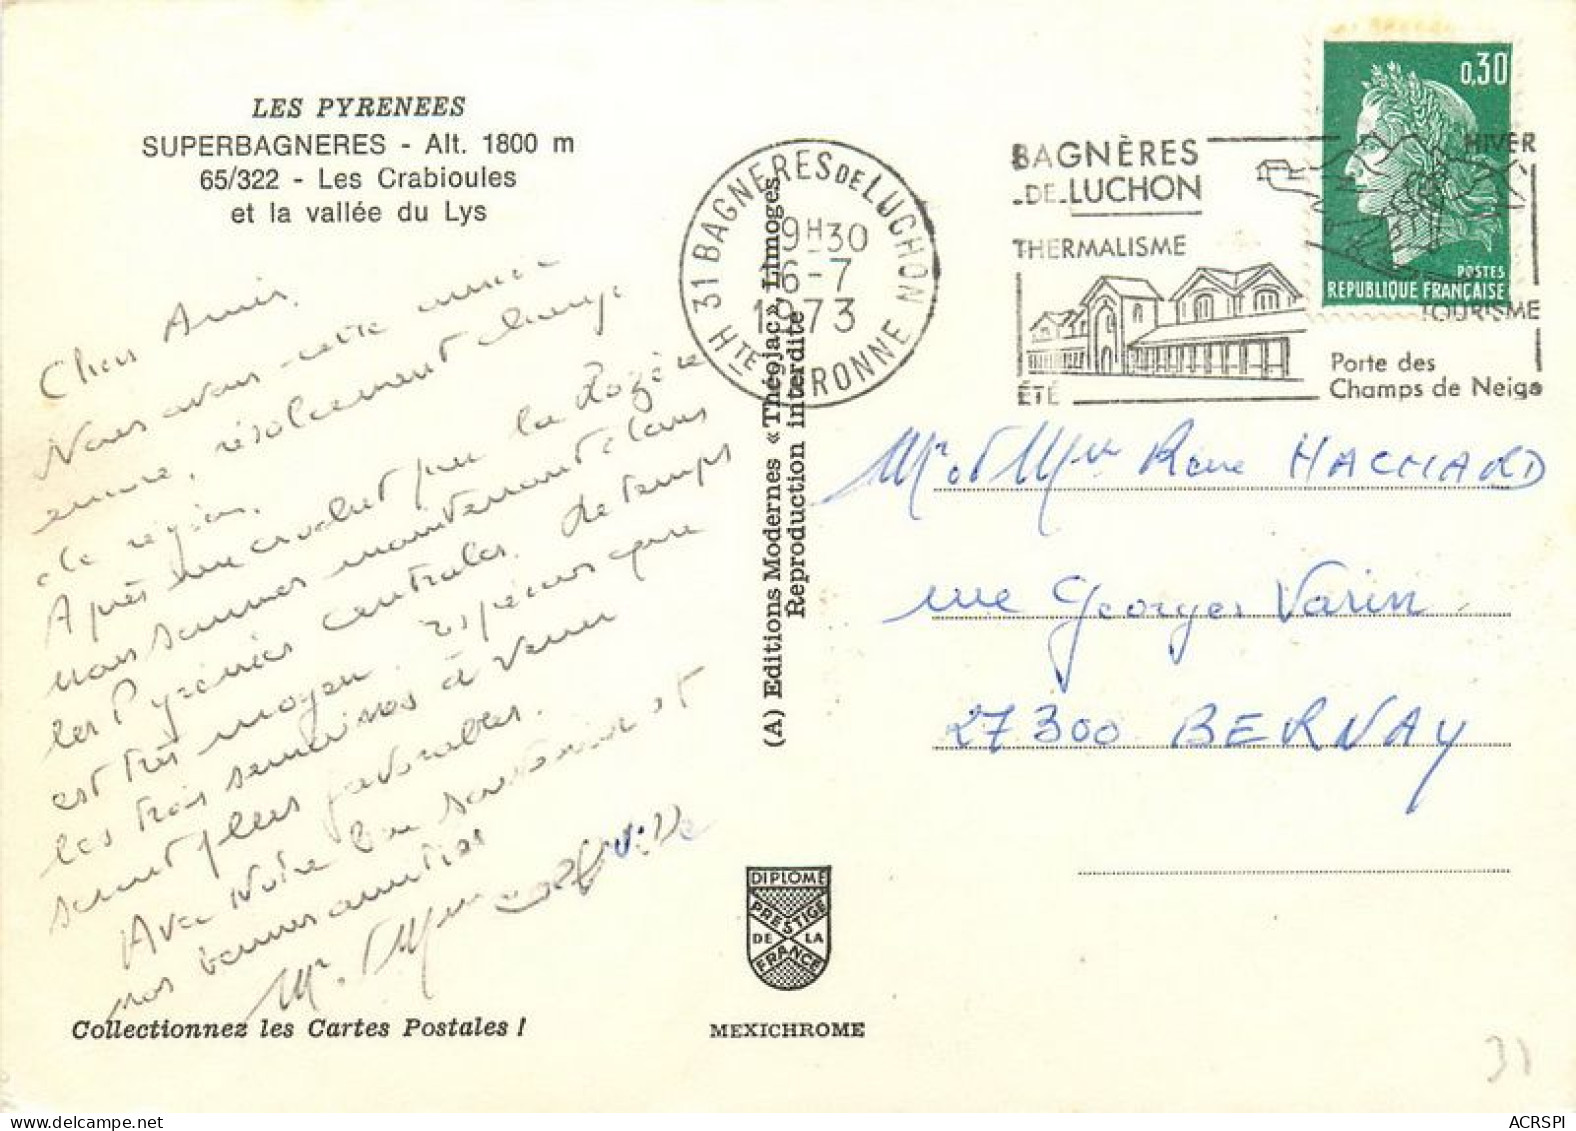 LES PYRENEES
SUPERBAGNERES - Alt. 1800 m
65/322 - Les Crabioules
et la vallée du Lys
Chers Amis,
Nous avons cette année
encore, résolument changé
de région.
Après un crochet par la Lozère
nous sommes maintenant dans
les Pyrénées centrales. Le temps
est très moyen. Espérons que
les trois semaines à venir
seront plus favorables.
Avec notre bon souvenir et
nos bonnes amitiés
Mr et Mme
Collectionnez les Cartes Postales !
(A) Editions Modernes «Théojac», Limoges
Reproduction interdite
31 BAGNERES DE LUCHON
9H30
6-7
1973
HTE GARONNE
BAGNÈRES
DE LUCHON
THERMALISME
ÉTÉ
HIVER
TOURISME
Porte des
Champs de Neige
0,30
POSTES
REPUBLIQUE FRANÇAISE
Mr et Mme René HACHARD
rue Georges Varin
27300 BERNAY
DIPLOME
PRESTIGE
DE LA
FRANCE
MEXICHROME
31
ACRSPI